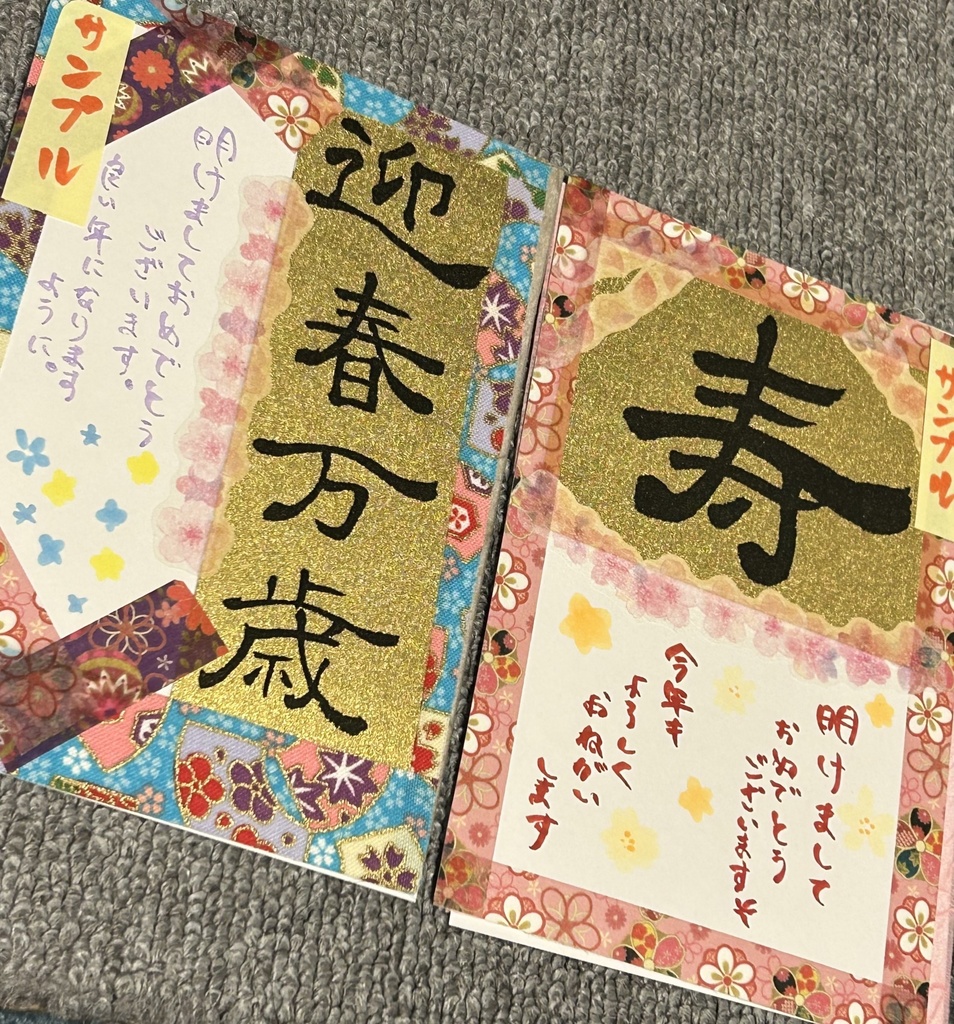 サンプル
迎春万歳
明けましておめでとう
ございます。
良い年になります
ように。
サンプル
寿
明けまして
おめでとう
ございます
今年も
よろしく
おねがい
します